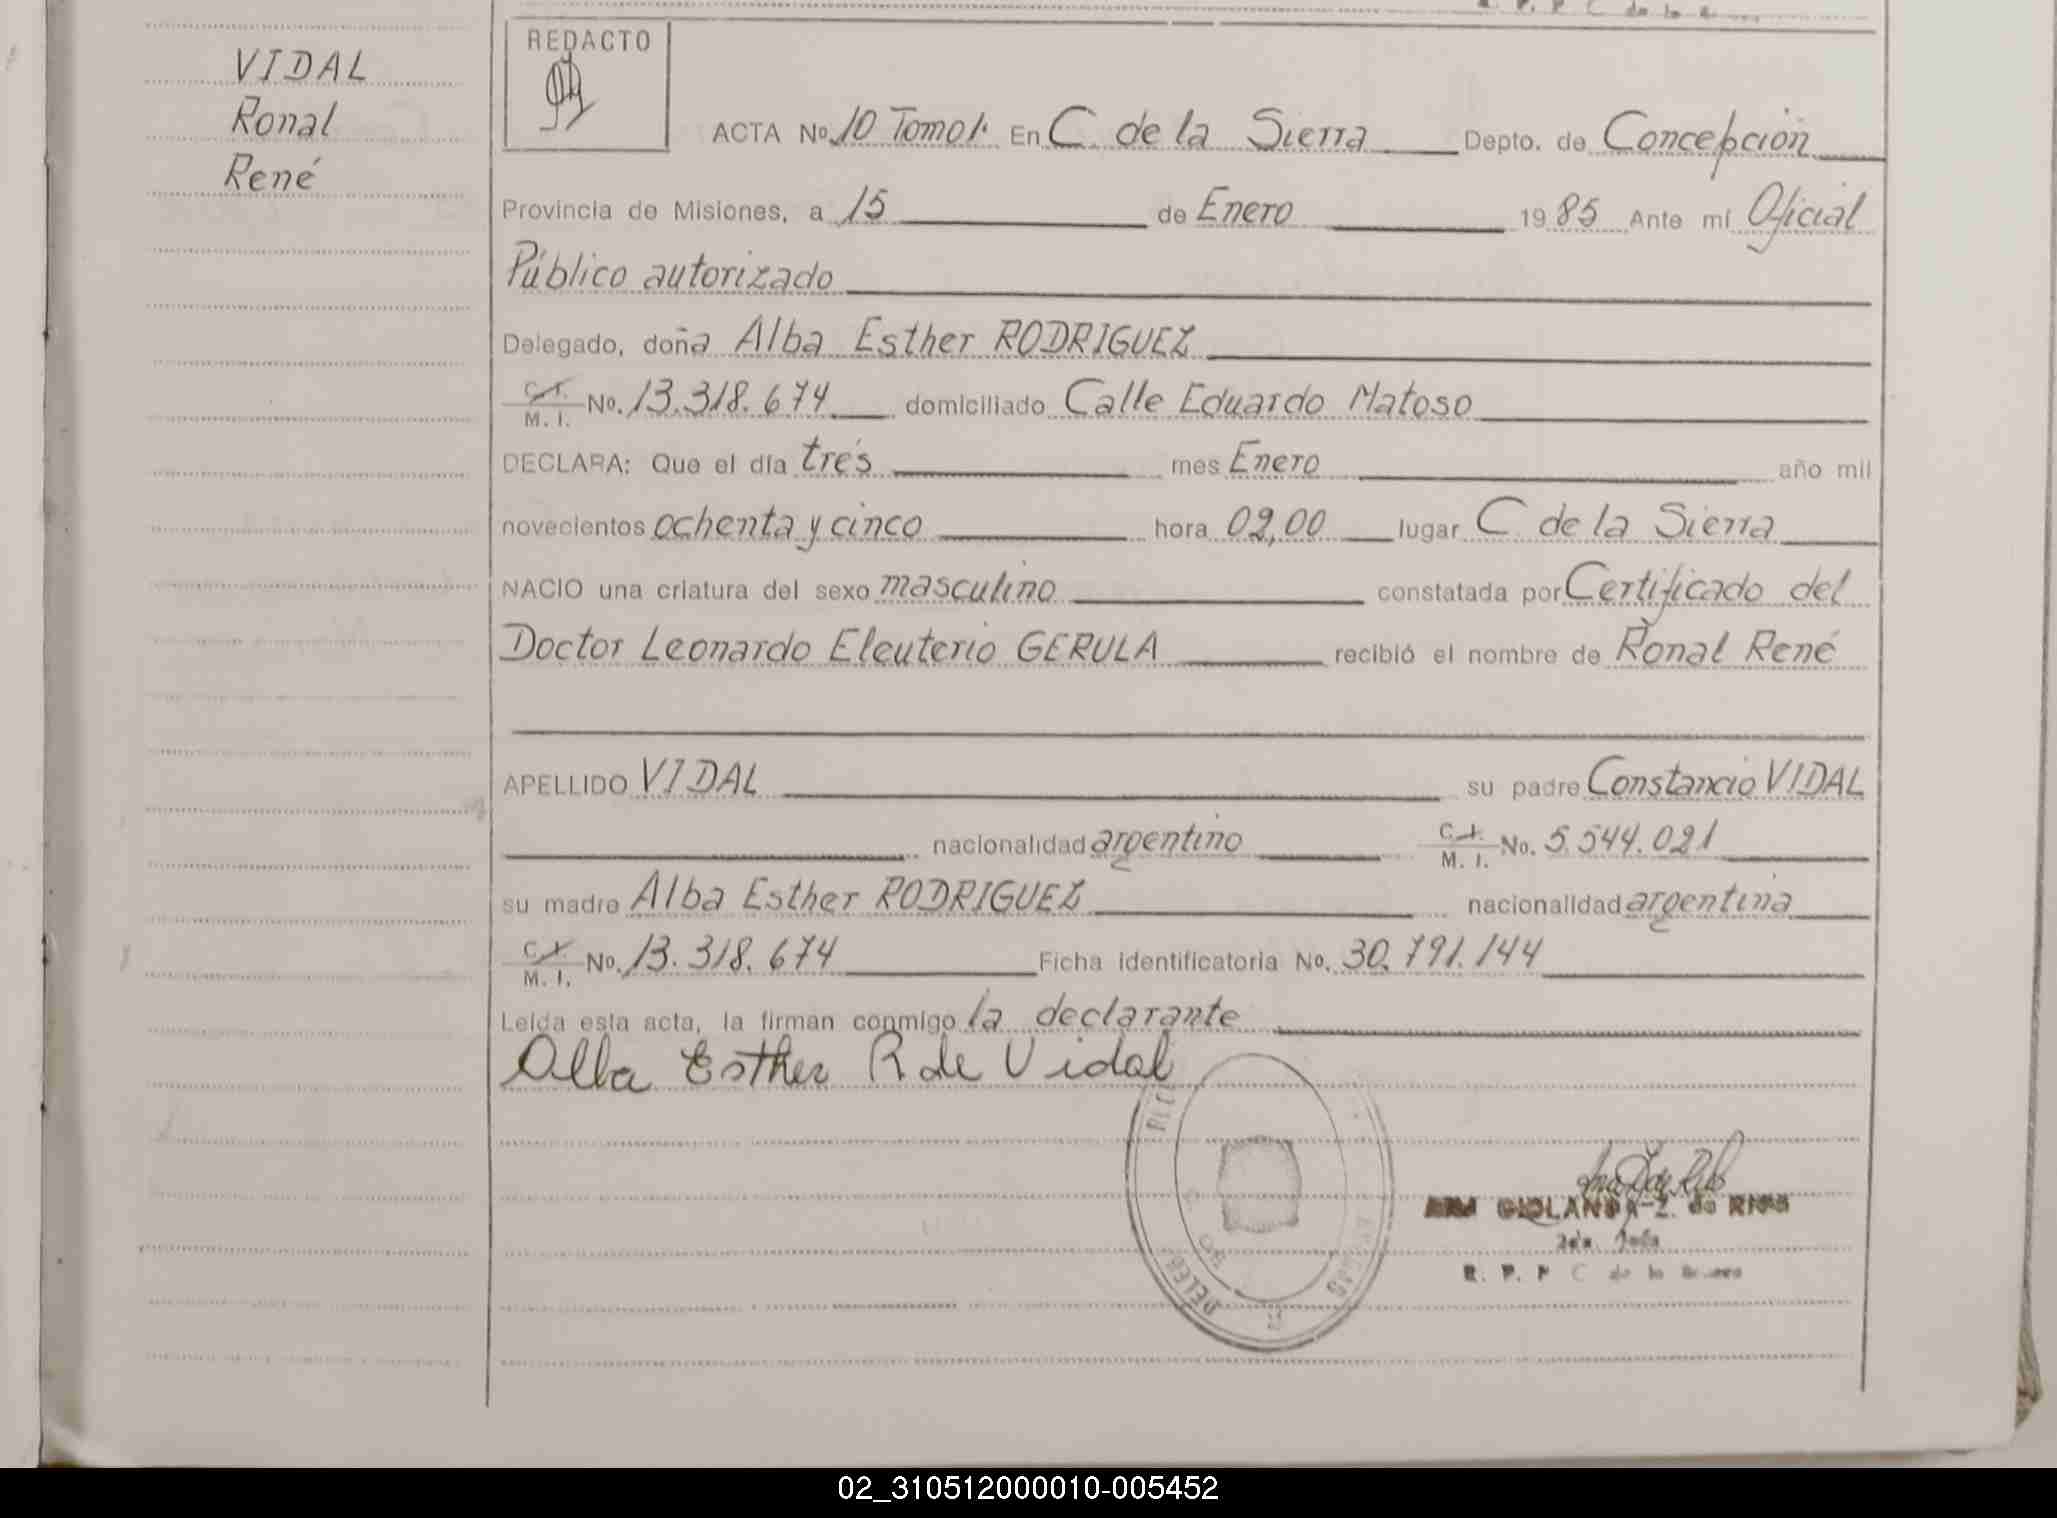 VIDAL
Ronal
René
REDACTO
ACTA No. 10 Tomo 1. En C. de la Sierra Depto. de Concepción
Provincia de Misiones, a 15 de Enero 1985 Ante mí Oficial
Público autorizado
Delegado, doña Alba Esther RODRIGUEZ
C. I. M. I. No. 13.318.674 domiciliado Calle Eduardo Matoso
DECLARA: Que el día tres mes Enero año mil
novecientos ochenta y cinco hora 02,00 lugar C. de la Sierra
NACIO una criatura del sexo masculino constatada por Certificado del
Doctor Leonardo Eleuterio GERULA recibió el nombre de Ronal René
APELLIDO VIDAL su padre Constancio VIDAL
nacionalidad argentino C. I. M. I. No. 5.544.021
su madre Alba Esther RODRIGUEZ nacionalidad argentina
C. I. M. I. No. 13.318.674 Ficha identificatoria No. 30.791.144
Leída esta acta, la firman conmigo la declarante
Alba Esther R de Vidal
GIOLANDA Z. de RIOS
R. P. P C de la Sierra
02_310512000010-005452